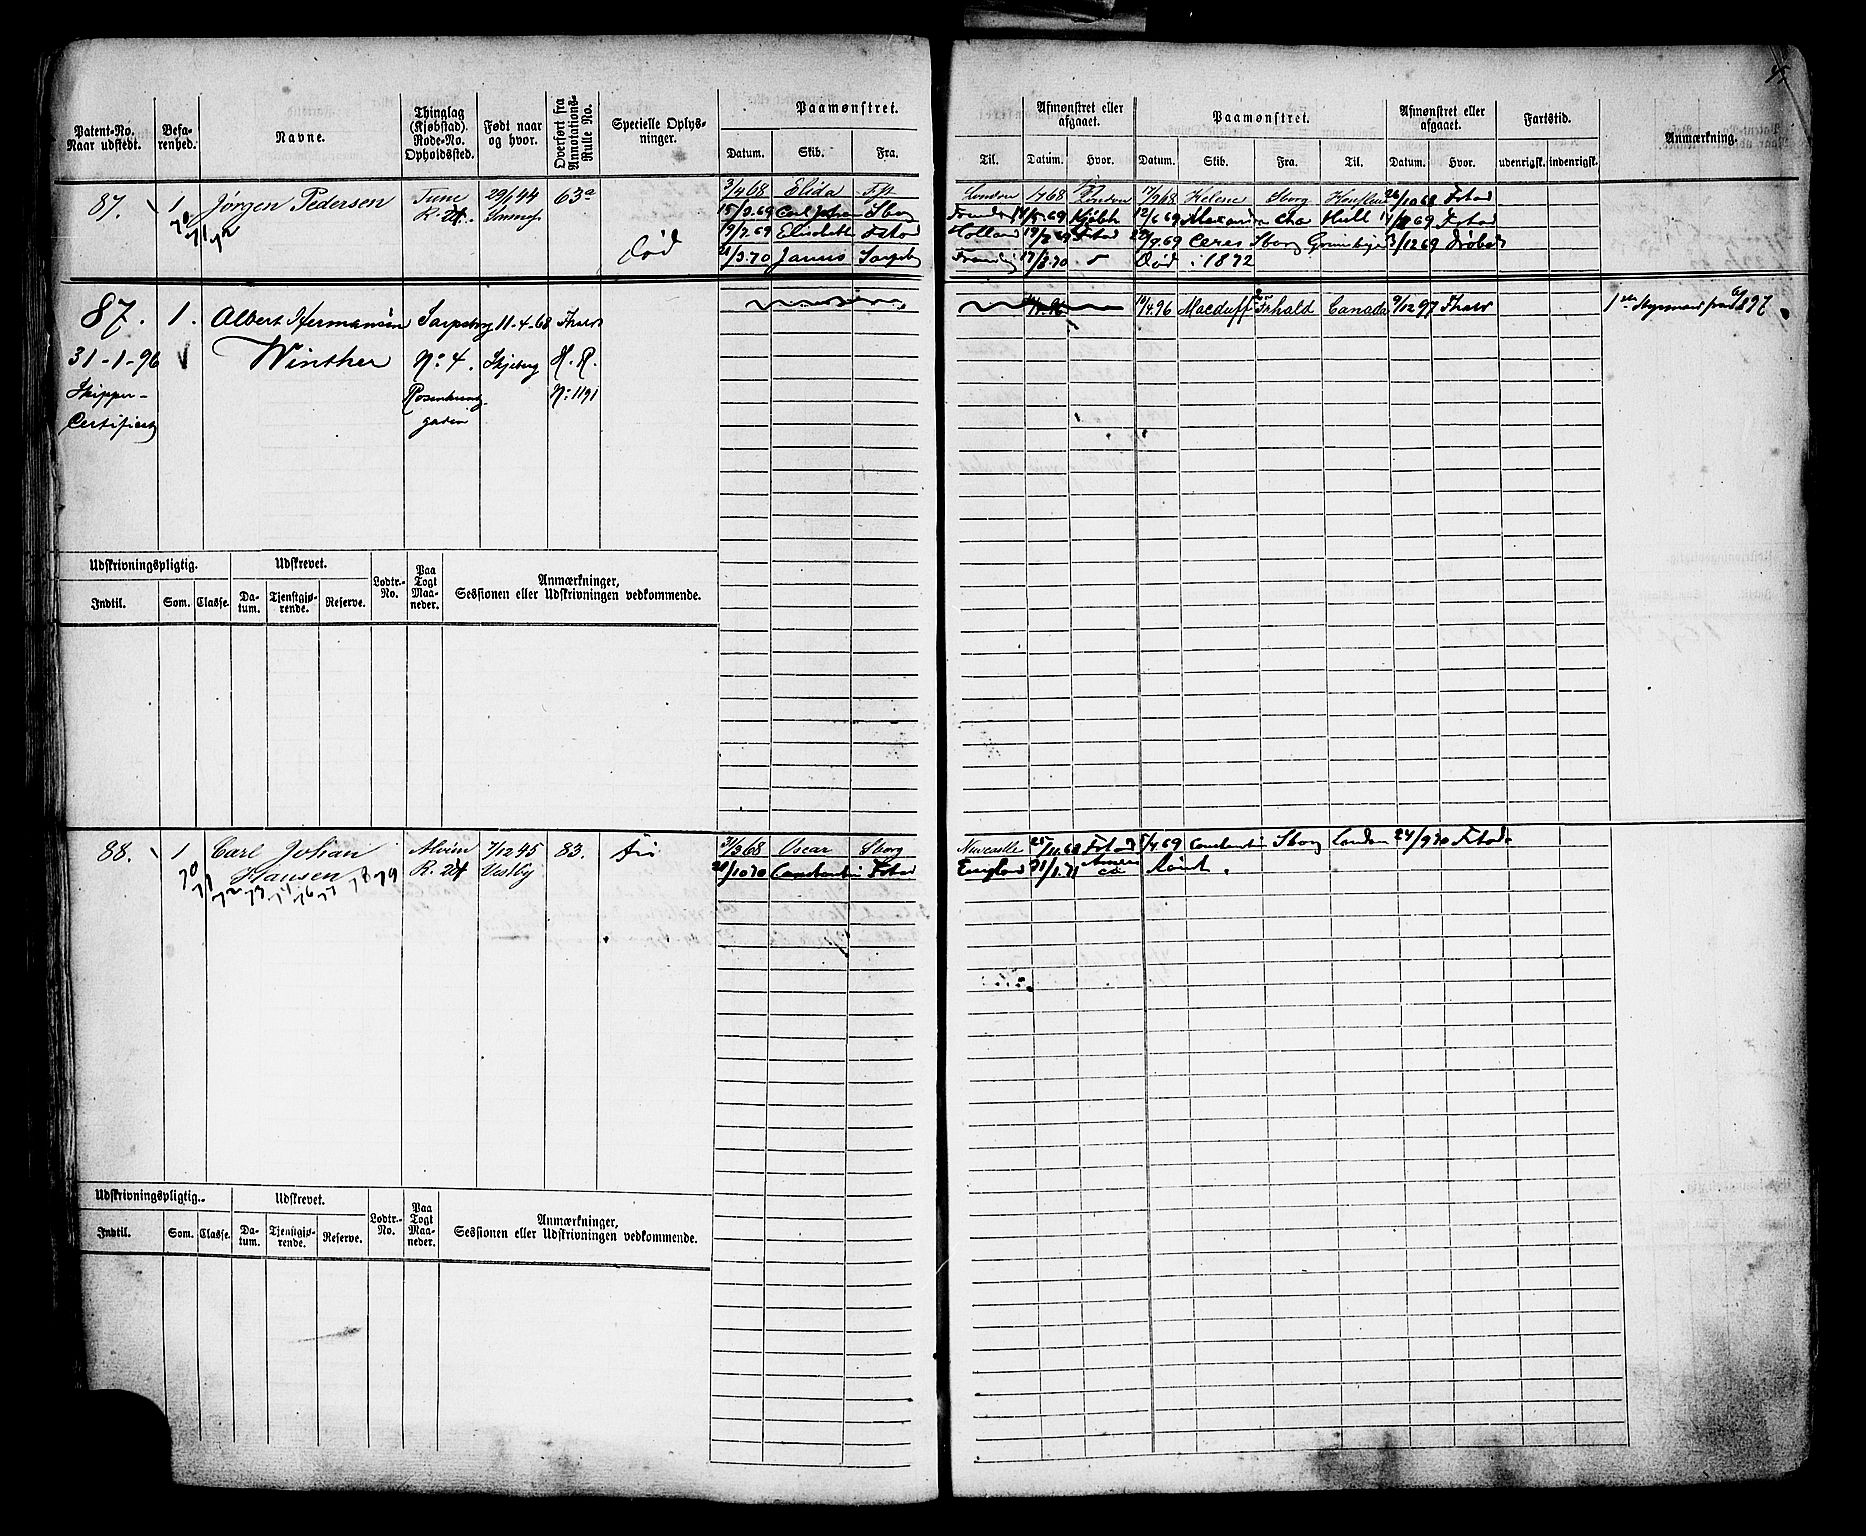 45
Patent-No. Naar udstedt. Befarenhed. Navne. Thinglag (Kjøbstad). Rode-No. Opholdssted. Født naar og hvor. Overført fra Annotations-Rulle No. Specielle Oplysninger. Paamønstret. Datum. Skib. Fra.
Til. Afmønstret eller afgaaet. Datum. Hvor. Paamønstret. Datum. Skib. Fra. Til. Afmønstret eller afgaaet. Datum. Hvor. Fartstid. udenrigsk. indenrigsk. Anmærkning.
87. 1 Jørgen Pedersen Tune 29/1 44 63a 3/4 68 Elida Fst London 68 London 17/9 68 Helene Sborg 26/10 68 Fstad
70 71 72 R. 24. 15/3 69 Sborg 69 12/6 69 Hull 69 Fstad
19/7 69 Elisabeth Fstad Holland 19/ 69 Fstad /9 69 Ceres Sborg 3/12 69 Drøbak
Død /3 70 Janus Sarpsb 17/8 70 Død i 1872
87. 1. Albert Hermansen Sarpsborg 11-4-68 Fhald 19/4 96 Macduff Frhald Canada 9/12 97 Fhald 1ste Styrmand 97
31-1-96 Winther No: 4. Skjeberg H. R.
Skipper- No: 1191
Certificat gaden
Udskrivningspligtig. Udskrevet. Lodtr.-No. Paa Togt Maaneder. Anmærkninger, Sessionen eller Udskrivningen vedkommende.
Indtil. Som. Classe. Datum. Tjenstgjørende. Reserve.
88. 1 Carl Johan Alvim 7/12 45 83. Fri 3/3 68 Oscar Sborg Newcastle 25/11 68 Fstad 5/4 69 Constantin Sborg London 24/9 70 Fstad
70 71 Hansen R. 24 Vestby /10 70 Constantin Fstad England 31/1 71 Rømt.
72 73 74 76 77 78 79
Udskrivningspligtig. Udskrevet. Lodtr.-No. Paa Togt Maaneder. Anmærkninger, Sessionen eller Udskrivningen vedkommende.
Indtil. Som. Classe. Datum. Tjenstgjørende. Reserve.